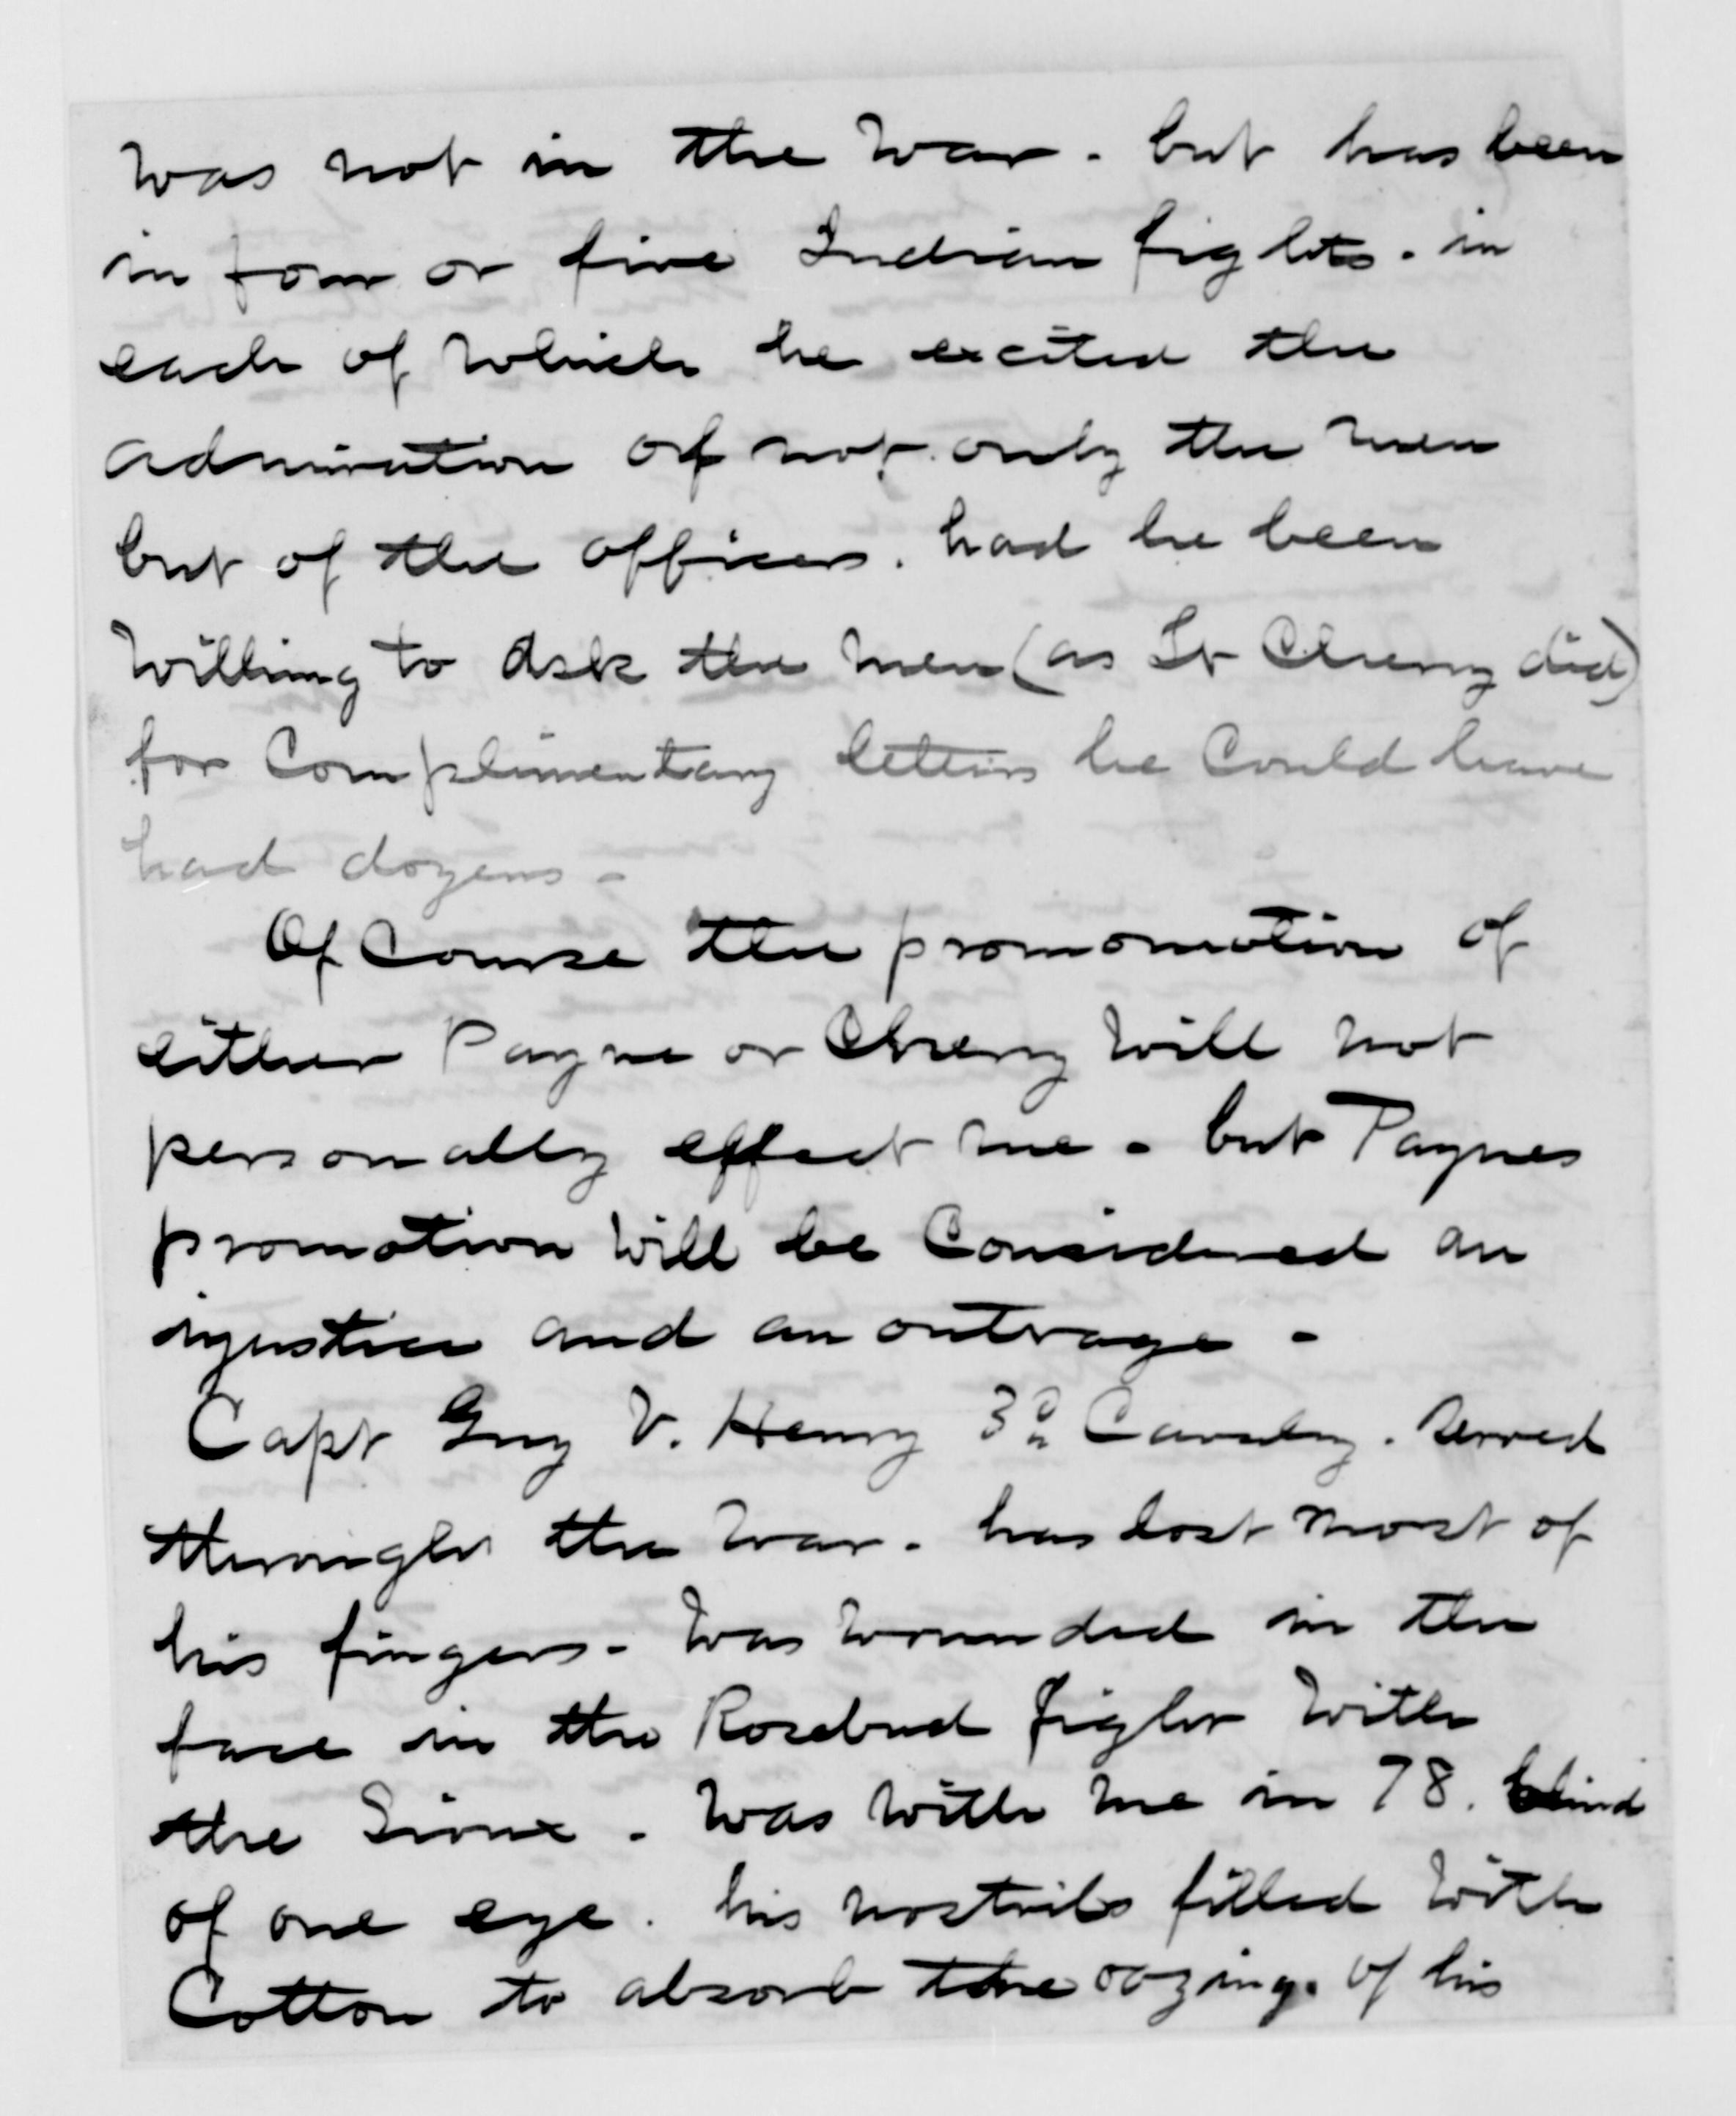 was not in the war. but has been
in four or five Indian fights. in
each of which he excited the
admiration of not only the men
but of the officers. had he been
willing to ask the men (as Lt Cherry did)
for complimentary letters he could have
had dozens -
Of course the promomotion of
either Payne or Cherry will not
personally effect me - but Paynes
promotion will be considered an
injustice and an outrage -
Capt Guy V. Henry 3d Cavalry. Served
through the war. has lost most of
his fingers - was wounded in the
face in the Rosebud fight with
the Sioux - was with me in 78. blind
of one eye. his nostrils filled with
Cotton to absorb the oozings of his